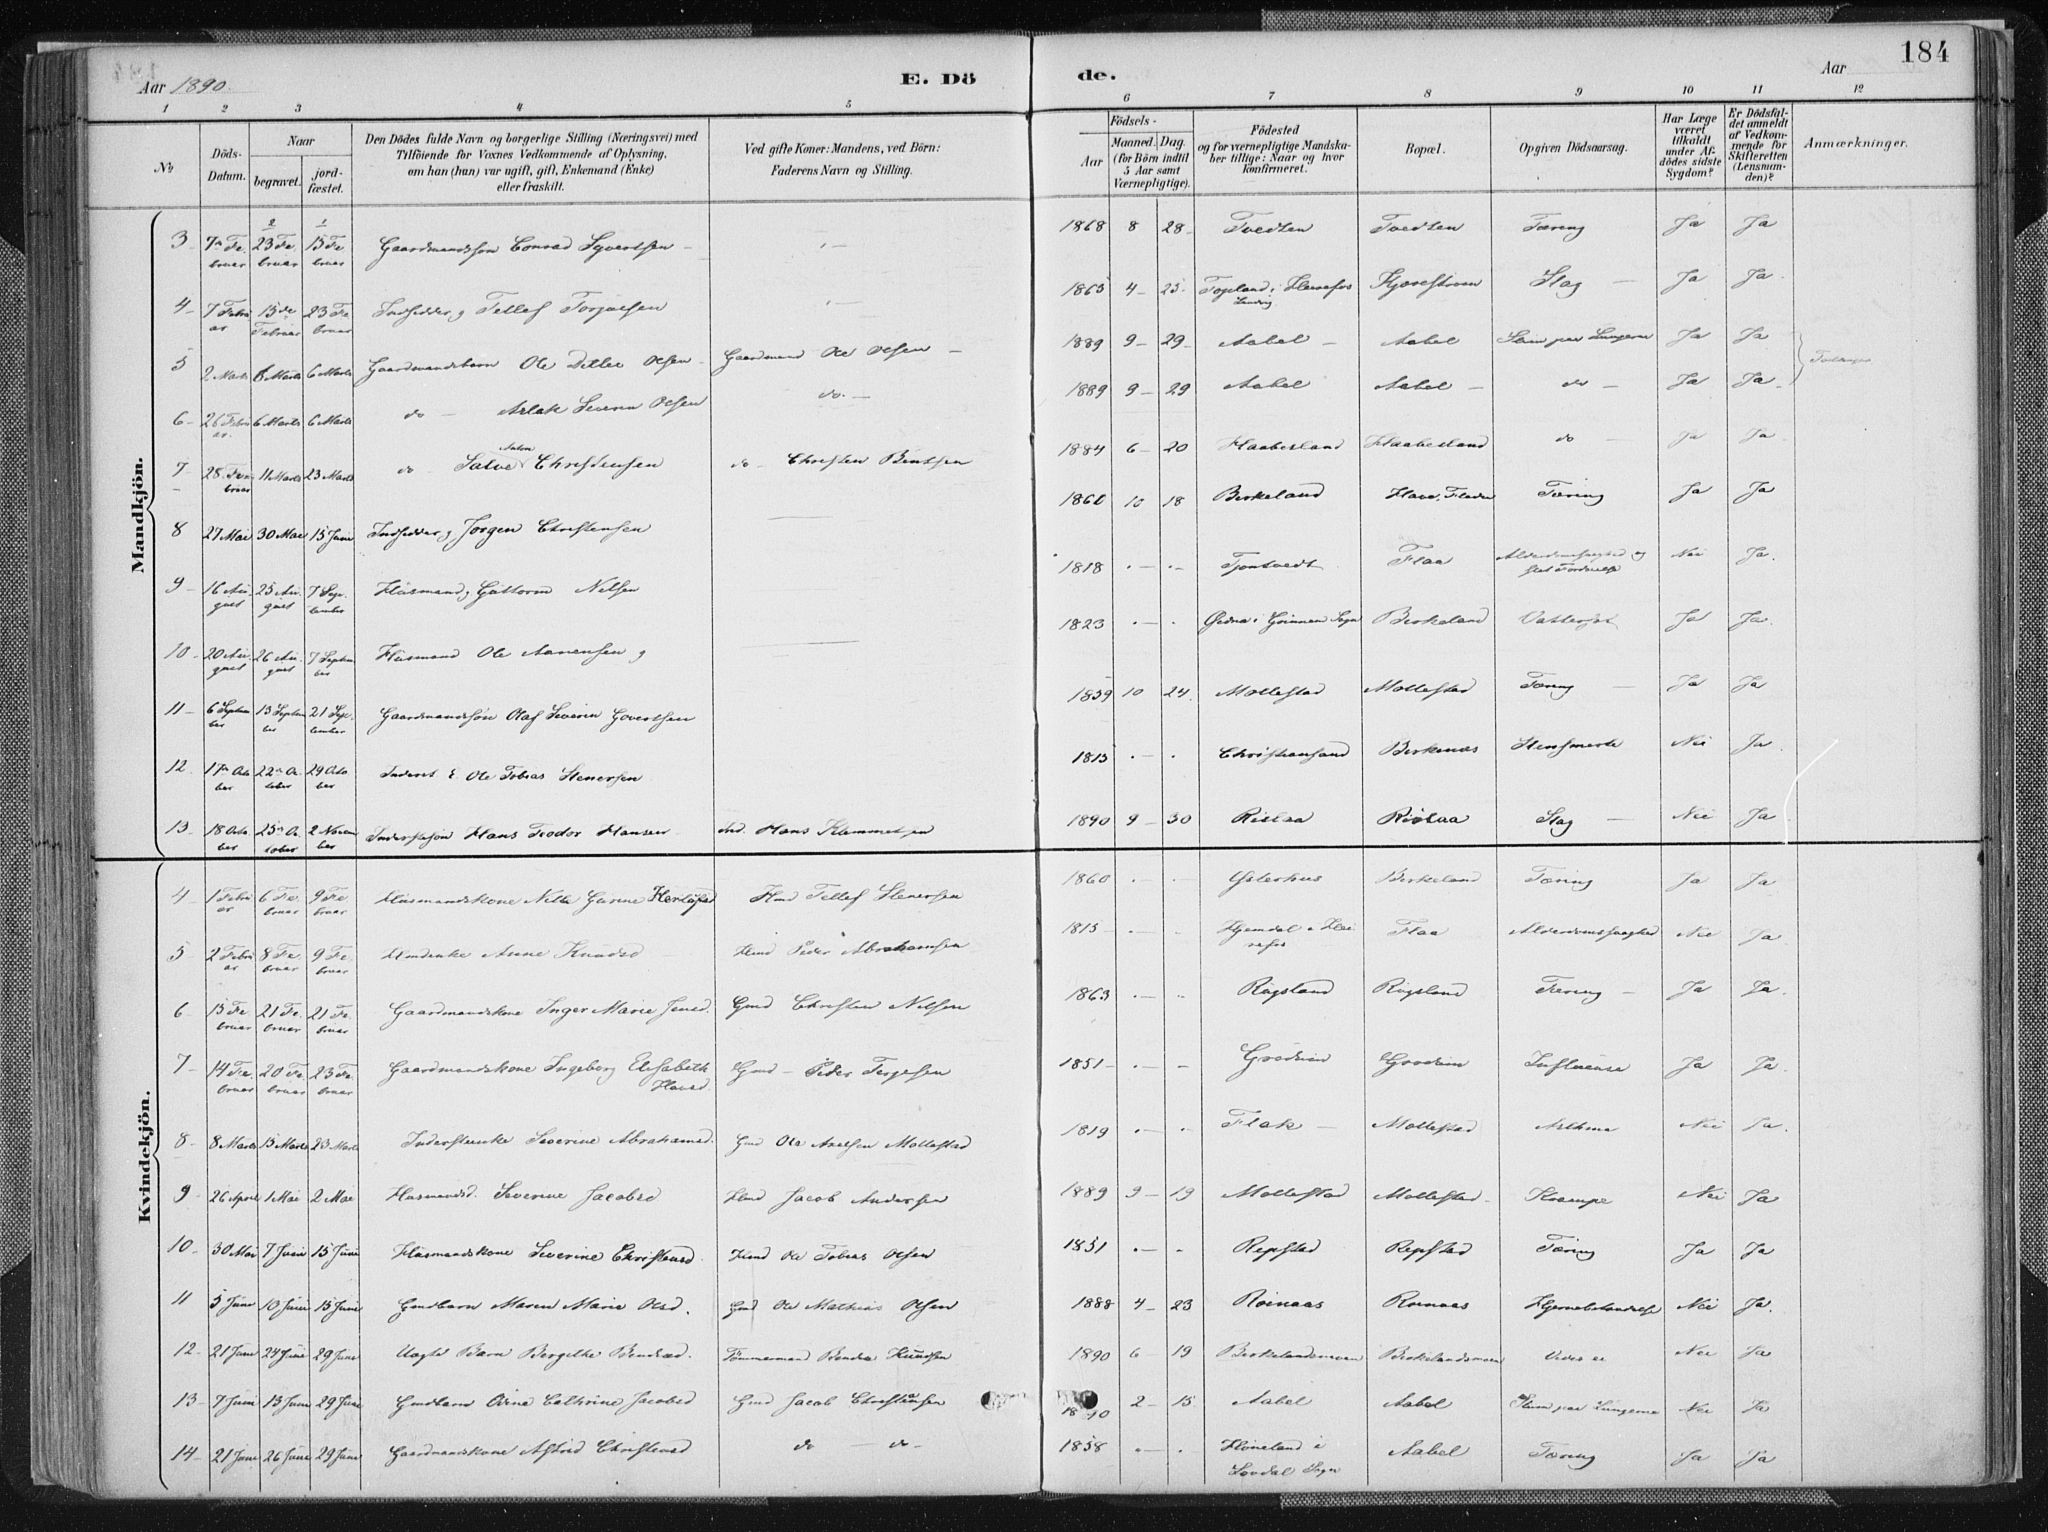 184
Aar 1890.
E. Dö
de.
Aar
1 2 3 4 5
6 7 8 9 10 11 12
No
Döds-Datum.
Naar
begravet.
jord-fæstet.
Den Dödes fulde Navn og borgerlige Stilling (Næringsvei) med
Tilföiende for Voxnes Vedkommende af Oplysning,
om han (hun) var ugift, gift, Enkemand (Enke)
eller fraskilt.
Ved gifte Koner: Mandens, ved. Börn:
Faderens Navn og Stilling.
Födsels-
Aar
Maaned. Dag.
(for Börn indtil
5 Aar samt
Værnepligtige).
Födested
og for værnepligtige Mandska-
ber tillige: Naar og hvor
konfirmeret.
Bopæl.
Opgiven Dödsaarsag.
Har Læge
været
tilkaldt
under Af-
dödes sidste
Sygdom?
Er Dödsfal-
det anmeldt
af Vedkom-
mende for
Skifteretten
(Lensman-
den)?
Anmærkninger.
Mandkjön.
3 7de Februar 23 Februar 15 Februar Gaardmandssøn Conrad Syvertsen 1868 8 28 Tvedten Tvedten Tæring Ja Ja
4 7 Februar 15de Februar 23 Februar Indsidder, Tellef Torjusen 1865 4 25 Slag Ja Ja
5 2 Marts 6 Marts 6 Marts Gaardmandsbarn Ole Olsen Gaardmand Ole Olsen 1889 9 29 Aabel Aabel Ja Ja
6 26 Februar 6 Marts 6 Marts do Aslak Severin Olsen do 1889 9 29 Aabel Aabel do Ja Ja
7 28 Februar 11 Marts 23 Marts do Salve Anton Christensen do Christen Bentsen 1884 6 20 Haabesland Haabesland do Ja Ja
8 27 Mai 30 Mai 15 Juni Indsidder, Jørgen Christensen 10 18 Birkeland Tæring Ja Ja
9 16 August 25 August 7 September Husmand, Guttorm Nilsen 1818 Flaa Nei Ja
10 20 August 26 August 7 September Husmand Ole Aanensen 1823 Birkeland Ja Ja
11 6 September 13 September 21 September Gaardmandssøn Olaf Severin Govertsen 1859 10 24 Mollestad Mollestad Tæring Ja Ja
12 17de October 22de October 29 October Inderst E Ole Tobias Stenersen 1815 Christiansand Birkenæs Nei Ja
13 18 October 25de October 2 November Inderstsøn Hans Teodor Hansen Ind. Hans Klemmetsen 1890 9 30 Rislaa Rislaa Slag Nei Ja
Kvindekjön.
4 1 Februar 6 Februar 9 Februar Husmandskone Hmd Tellef Stenersen 1860 Østerhus Birkeland Tæring Ja Ja
5 2 Februar 8 Februar 9 Februar Anne Knudsd Hmd Peder Abrahamsen 1815 Flaa Alderdomssvaghed Nei Ja
6 15 Februar 21 Februar 21 Februar Gaardmandskone Inger Marie Jensd. Gmd Christen Nilsen 1863 Rugsland Rugsland Tæring Ja Ja
7 14 Februar 20 Februar 23 Februar Gaardmandskone Ingeborg Elisabeth Hansd. Gmd Peder Terjesen 1851 Influensa Ja Ja
8 8 Marts 15 Marts 23 Marts Inderstenke Severine Abrahamsd. Gmd Ole Axelsen Mollestad 1819 Flak Mollestad Asthma Nei Ja
9 26 April 1 Mai 2 Mai Husmandsd. Severine Jacobsd Hmd Jacob Andersen 1889 9 19 Mollestad Mollestad Krampe Nei Ja
10 30 Mai 7 Juni 15 Juni Husmandskone Severine Christensd. Hmd Ole Tobias Olsen 1851 Repstad Repstad Tæring Ja Ja
11 5 Juni 10 Juni 15 Juni Gmdbarn Maren Marie Olsd. Gmd Ole Mathias Olsen 1888 4 23 Hjernebetændelse Nei Ja
12 21 Juni 24 Juni 29 Juni Uægte Barn Bergithe Bendixd. Tömmermand Bendix Knudsen 1890 6 19 Birkelandsmoen Birkelandsmoen Nei Ja
13 7 Juni 13 Juni 29 Juni Cathrine Jacobsd Gmd Jacob Christensen 2 15 Aabel Aabel Nei Ja
14 21 Juni 26 Juni 29 Juni Gaardmandskone Astrid Christensd do do 1858 Aabel Tæring Ja Ja